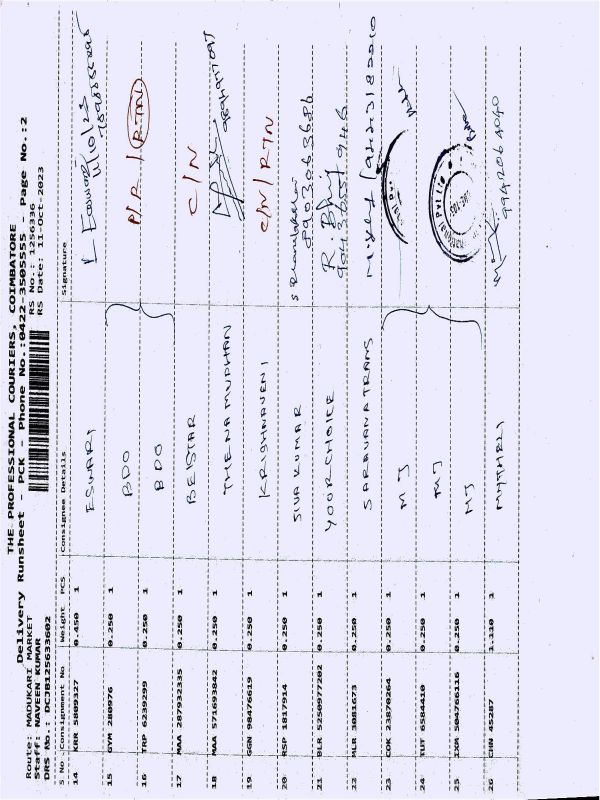 THE PROFESSIONAL COURIERS, COIMBATORE
Delivery Runsheet - PCK - Phone No.:0422-3505555 - Page No.:2
Route: MADUKARI MARKET
Staff: NAVEEN KUMAR
DRS No.: DCJB125633602
RS No.: 1256336
RS Date: 11-Oct-2023
S No. Consignment No Weight PCS Consignee Details Signature
14 KRR 5809327 0.450 1 ESWARI
11/10/23
15 GYM 280976 0.250 1 BDO P/R / RTN
16 TRP 6239299 0.250 1 BDO
17 MAA 287932335 0.250 1 BEISTAR C/N
18 MAA 571693842 0.250 1 THENAMUDHAN
19 GGN 98476619 0.250 1 KRISHNAVENI C/N / RTN
20 RSP 1817914 0.250 1 SIVA KUMAR
8903063686
21 BLR 5250977202 0.250 1 YOUR CHOICE
22 MLR 3081673 0.250 1 SARAVANA TRANS
23 COK 23870264 0.250 1 MJ
24 TUT 6584410 0.250 1 MJ
25 IXM 504766116 0.250 1 MJ
26 CHN 45287 1.130 1 MYTHELI
9942064040